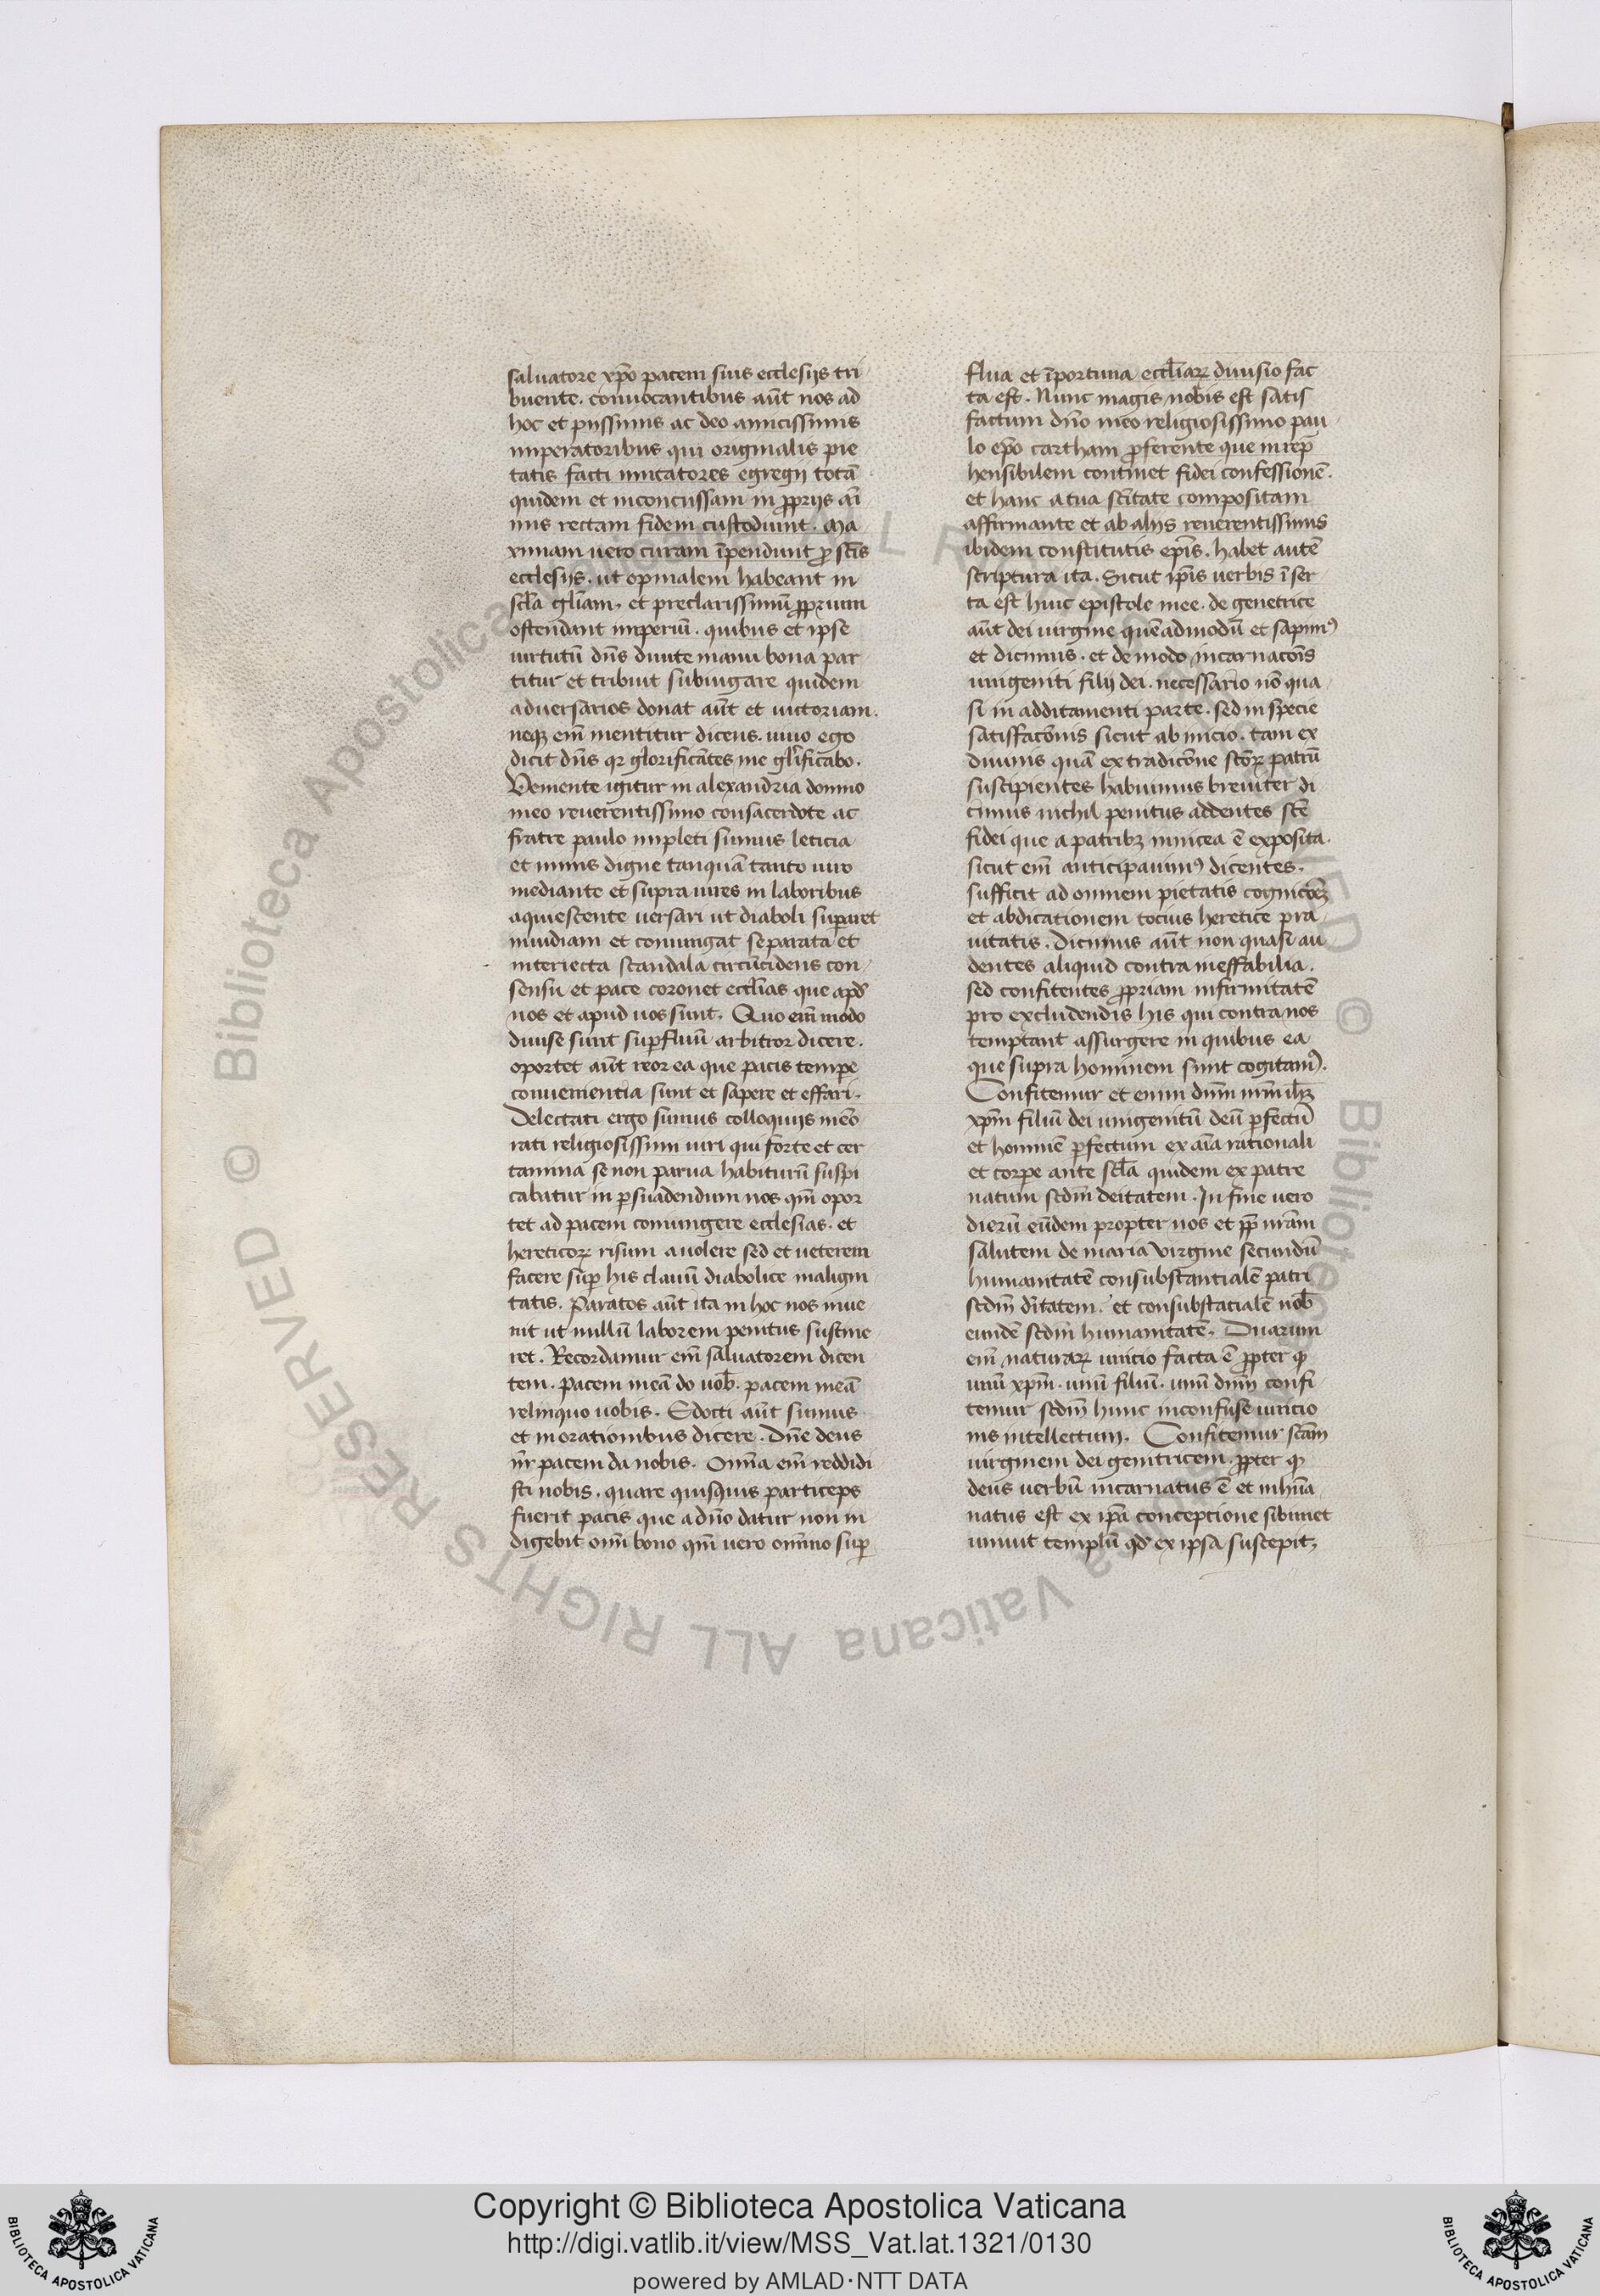 saluatore xp̄o pacem suis ecclesijs tri
buente. conuocantibus aūt nos ad
hoc et pijssimis ac deo amicissimis
imperatoribus qui originalis pie
tatis facti imitatores egregij totā
quidem et inconcussam in p̄prijs ai
mis rectam fidem custodiunt. Ma
ximam uero curam īpendunt ꝓ sc̄is
ecclesijs. ut opinalem habeant in
scl̄a glīam. et preclarissimū ꝓprium
ostendant imperiū. quibus et ipse
uirtutū dn̄s diuite manu bona par
titur et tribuit subiugare quidem
aduersarios donat aūt et uictoriam.
neqꝫ em̄ mentitur dicens. uiuo ego
dicit dn̄s qꝛ glorificātes me glīficabo.
Vemente igitur in alexandria domno
meo reuerentissimo consacerdote ac
fratre paulo impleti sumus leticia
et nimis digne tanquā tanto uiro
mediante et supra uires in laboribus
aquiescente uersari ut diaboli suꝑaret
inuidiam et coniungat separata et
interiecta scandala circūcidens con
sensu et pace coronet ecclīas que apd̓
nos et apud uos sunt. Quo em̄ modo
diuise sunt suꝑfluū arbitror dicere.
oportet aūt reor ea que pacis tempe
conuenientia sunt et sapere et effari.
Delectati ergo sumus colloquijs mēo
rati religiosissimi uiri qui forte et cer
tamina se non parua habiturū suspi
cabatur in ꝑsuadendum nos qm̄ opor
tet ad pacem coniungere ecclesias. et
hereticoꝝ risum auolere sed et ueterem
facere suꝑ his clauū diabolice maligni
tatis. Paratos aūt ita in hoc nos inue
nit ut nullū laborem penitus sustine
ret. Recordamur em̄ saluatorem dicen
tem. pacem meā do uob̄. pacem meā
relinquo uobis. Edocti aūt sumus
et in orationibus dicere. Dn̄e deus
nr̄ pacem da nobis. Omīa em̄ reddidi
sti nobis. quare quisquis particeps
fuerit pacis que a dn̄o datur non in
digebit om̄i bono qm̄ uero omīno suꝑ
flua et īportuna ecclīaꝝ diuisio fac
ta est. Nunc magis nobis est satis
factum dn̄o meo religiosissimo pau
lo ep̄o cartham ꝓferente que inrep̄
hensibilem continet fidei confessionē.
et hanc a tua sc̄itate compositam
affirmante et ab alijs reuerentissimis
ibidem constitutis ep̄is. habet autē
scriptura ita. Sicut ip̄is uerbis īser
ta est huic epistole mee. de genetrice
aūt dei uirgine quēadmodū et sapimꝰ
et dicimus. et de modo incarnacōis
unigeniti filij dei. necessario nō qua
si in additamenti parte. sed in specie
satisfactōnis sicut ab inicio. tam ex
diuinis quā ex tradicōne sc̄oꝝ patrū
suscipientes habuimus breuiter di
cimus nichil penitus addentes sc̄e
fidei que a patribꝫ in nicea ē exposita.
sicut em̄ anticipauimꝰ dicentes.
sufficit ad omnem pietatis cognicōꝫ
et abdicationem tocius heretice pra
uitatis. Dicimus aūt non quasi au
dentes aliquid contra ineffabilia.
sed confitentes ꝓpriam infirmitatē
pro excludendis his qui contra nos
temptant assurgere in quibus ea
que supra hominem sunt cogitamꝰ.
Confitemur et enim dn̄m nr̄m ih̄ꝫ
xp̄m filiū dei unigenitū deū ꝑfectū
et hominē ꝑfectum ex aīa rationali
et corpe ante scl̄a quidem ex patre
natum scdm̄ deitatem. In fine uero
dierū eūdem propter nos et pp̄ nr̄am
salutem de maria virgine secundū
humanitatē consubstantialē patri
scdm̄ dītatem. et consubstātialē nob̄
eundē scdm̄ humanitatē. Duarum
em̄ naturaꝝ unitio facta ē ꝓpter qͥ
unū xp̄m. unū filiū. unū dn̄m confi
temur scdm̄ hunc inconfuse unitio
nis intellectum. Confitemur sc̄am
uirginem dei genitricem. ꝓpter qͥ
deus uerbū incarnatus ē et inhūa
natus est ex ip̄a conceptione sibimet
uniuit templū qd̓ ex ipsa suscepit,
© Biblioteca Apostolica Vaticana ALL RIGHTS RESERVED
© Biblioteca Apostolica Vaticana ALL RIGHTS RESERVED
Copyright © Biblioteca Apostolica Vaticana
http://digi.vatlib.it/view/MSS_Vat.lat.1321/0130
powered by AMLAD·NTT DATA
BIBLIOTECA APOSTOLICA VATICANA
BIBLIOTECA APOSTOLICA VATICANA